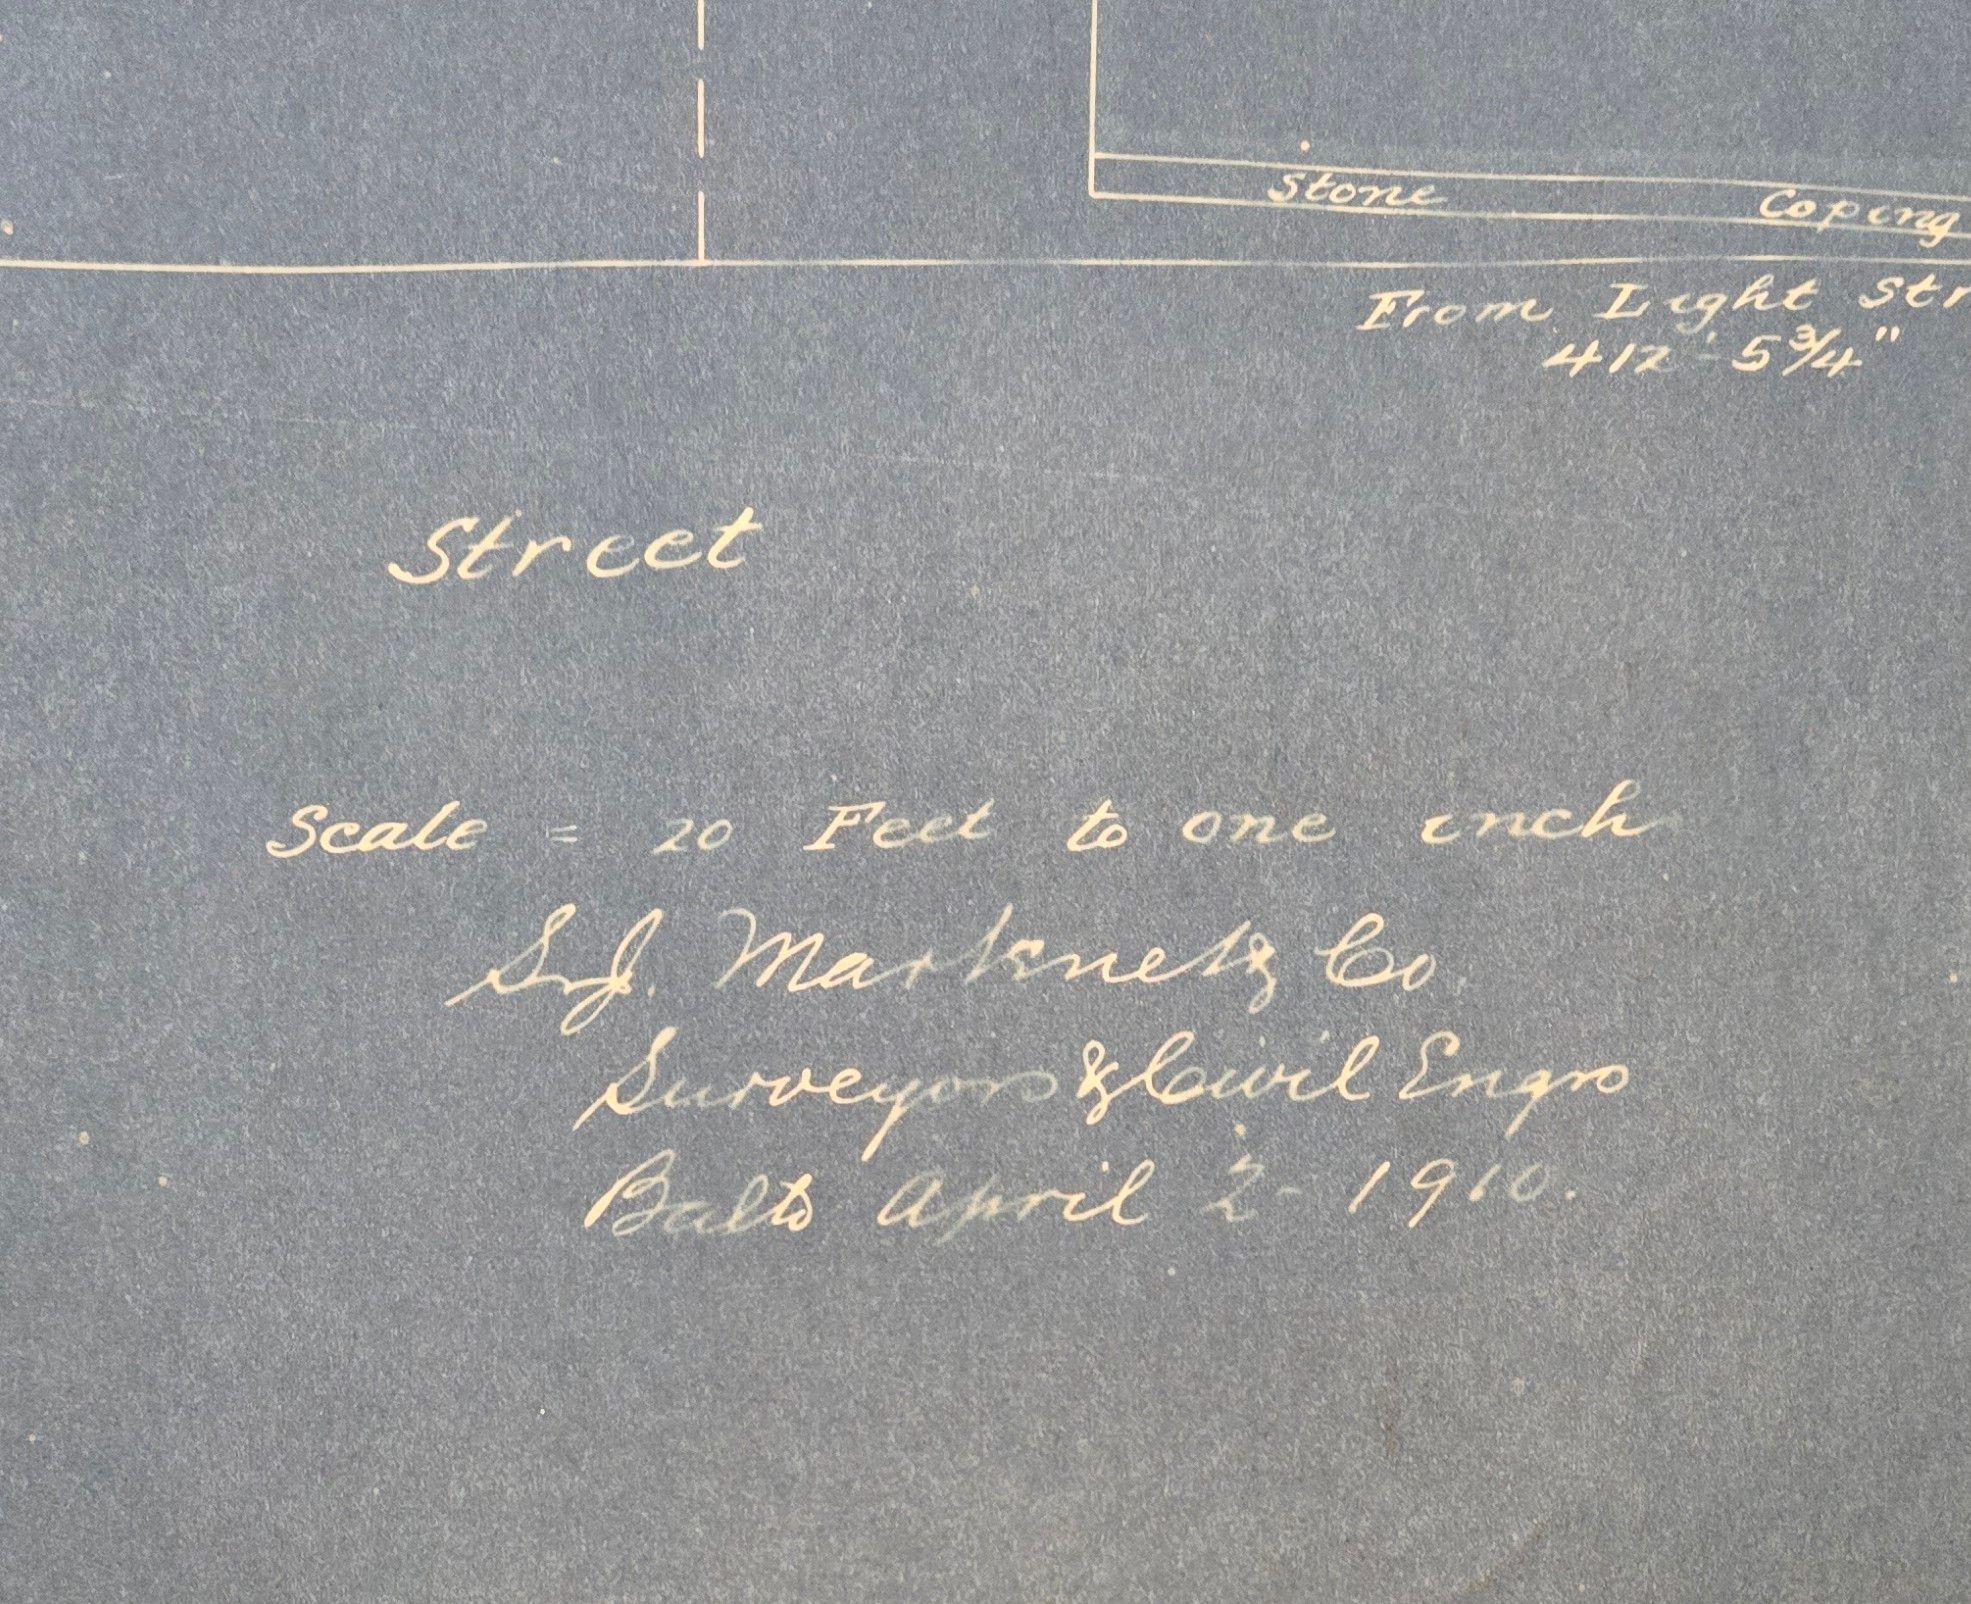 Stone Coping
From Light Str
412' - 5 3/4"
Street
Scale = 20 Feet to one inch
S. J. Martenet & Co.
Surveyors & Civil Engrs
Balto April 2 - 1910.